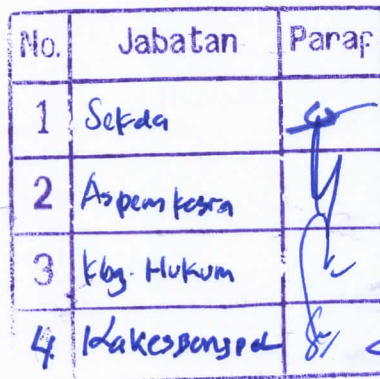 No. Jabatan Paraf
1 Sekda
2 Aspem kesra
3 Kbg. Hukum
4 Kakesbangpol